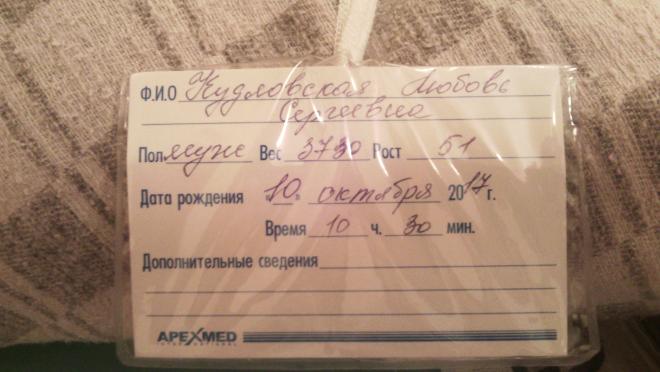 Ф.И.О Кудловская Любовь
Сергеевна
Пол муж Вес 3730 Рост 51
Дата рождения "10" октября 2017 г.
Время 10 ч. 30 мин.
Дополнительные сведения
APEXMED
INTERNATIONAL